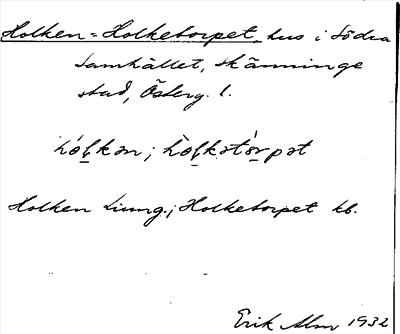 Holken = Holketorpet, hus i Södra
Samhället, Skänninge
stad, Österg. l.
hólkən; hòlkətórpət
Holken Ljung.; Holketorpet kb.
Erik Alm 1932